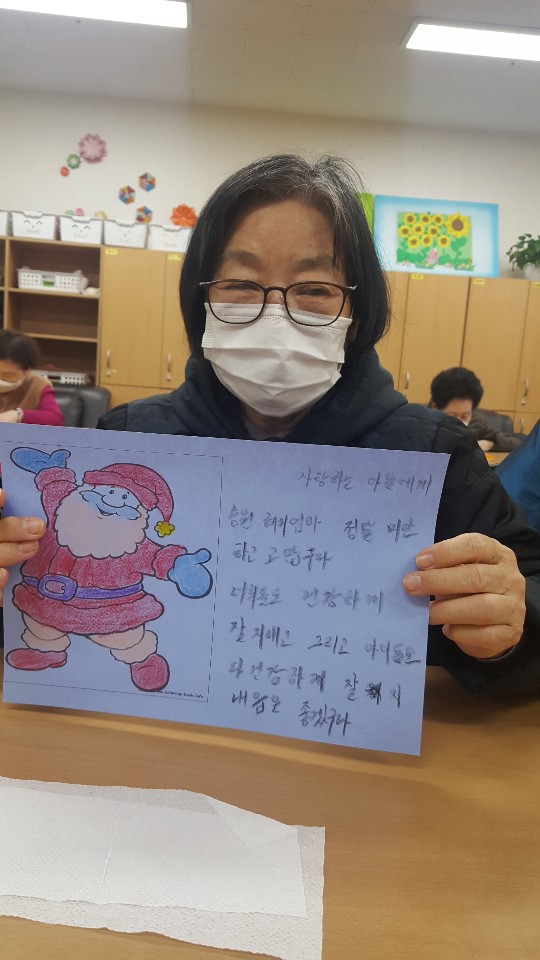 사랑하는 아들에게
승원 해피엄마 정말 미안
하고 고맙구나
너희들도 건강하게
잘지내고 그리고 아이들도
다건강하게 잘 지
내음은 좋겠구나